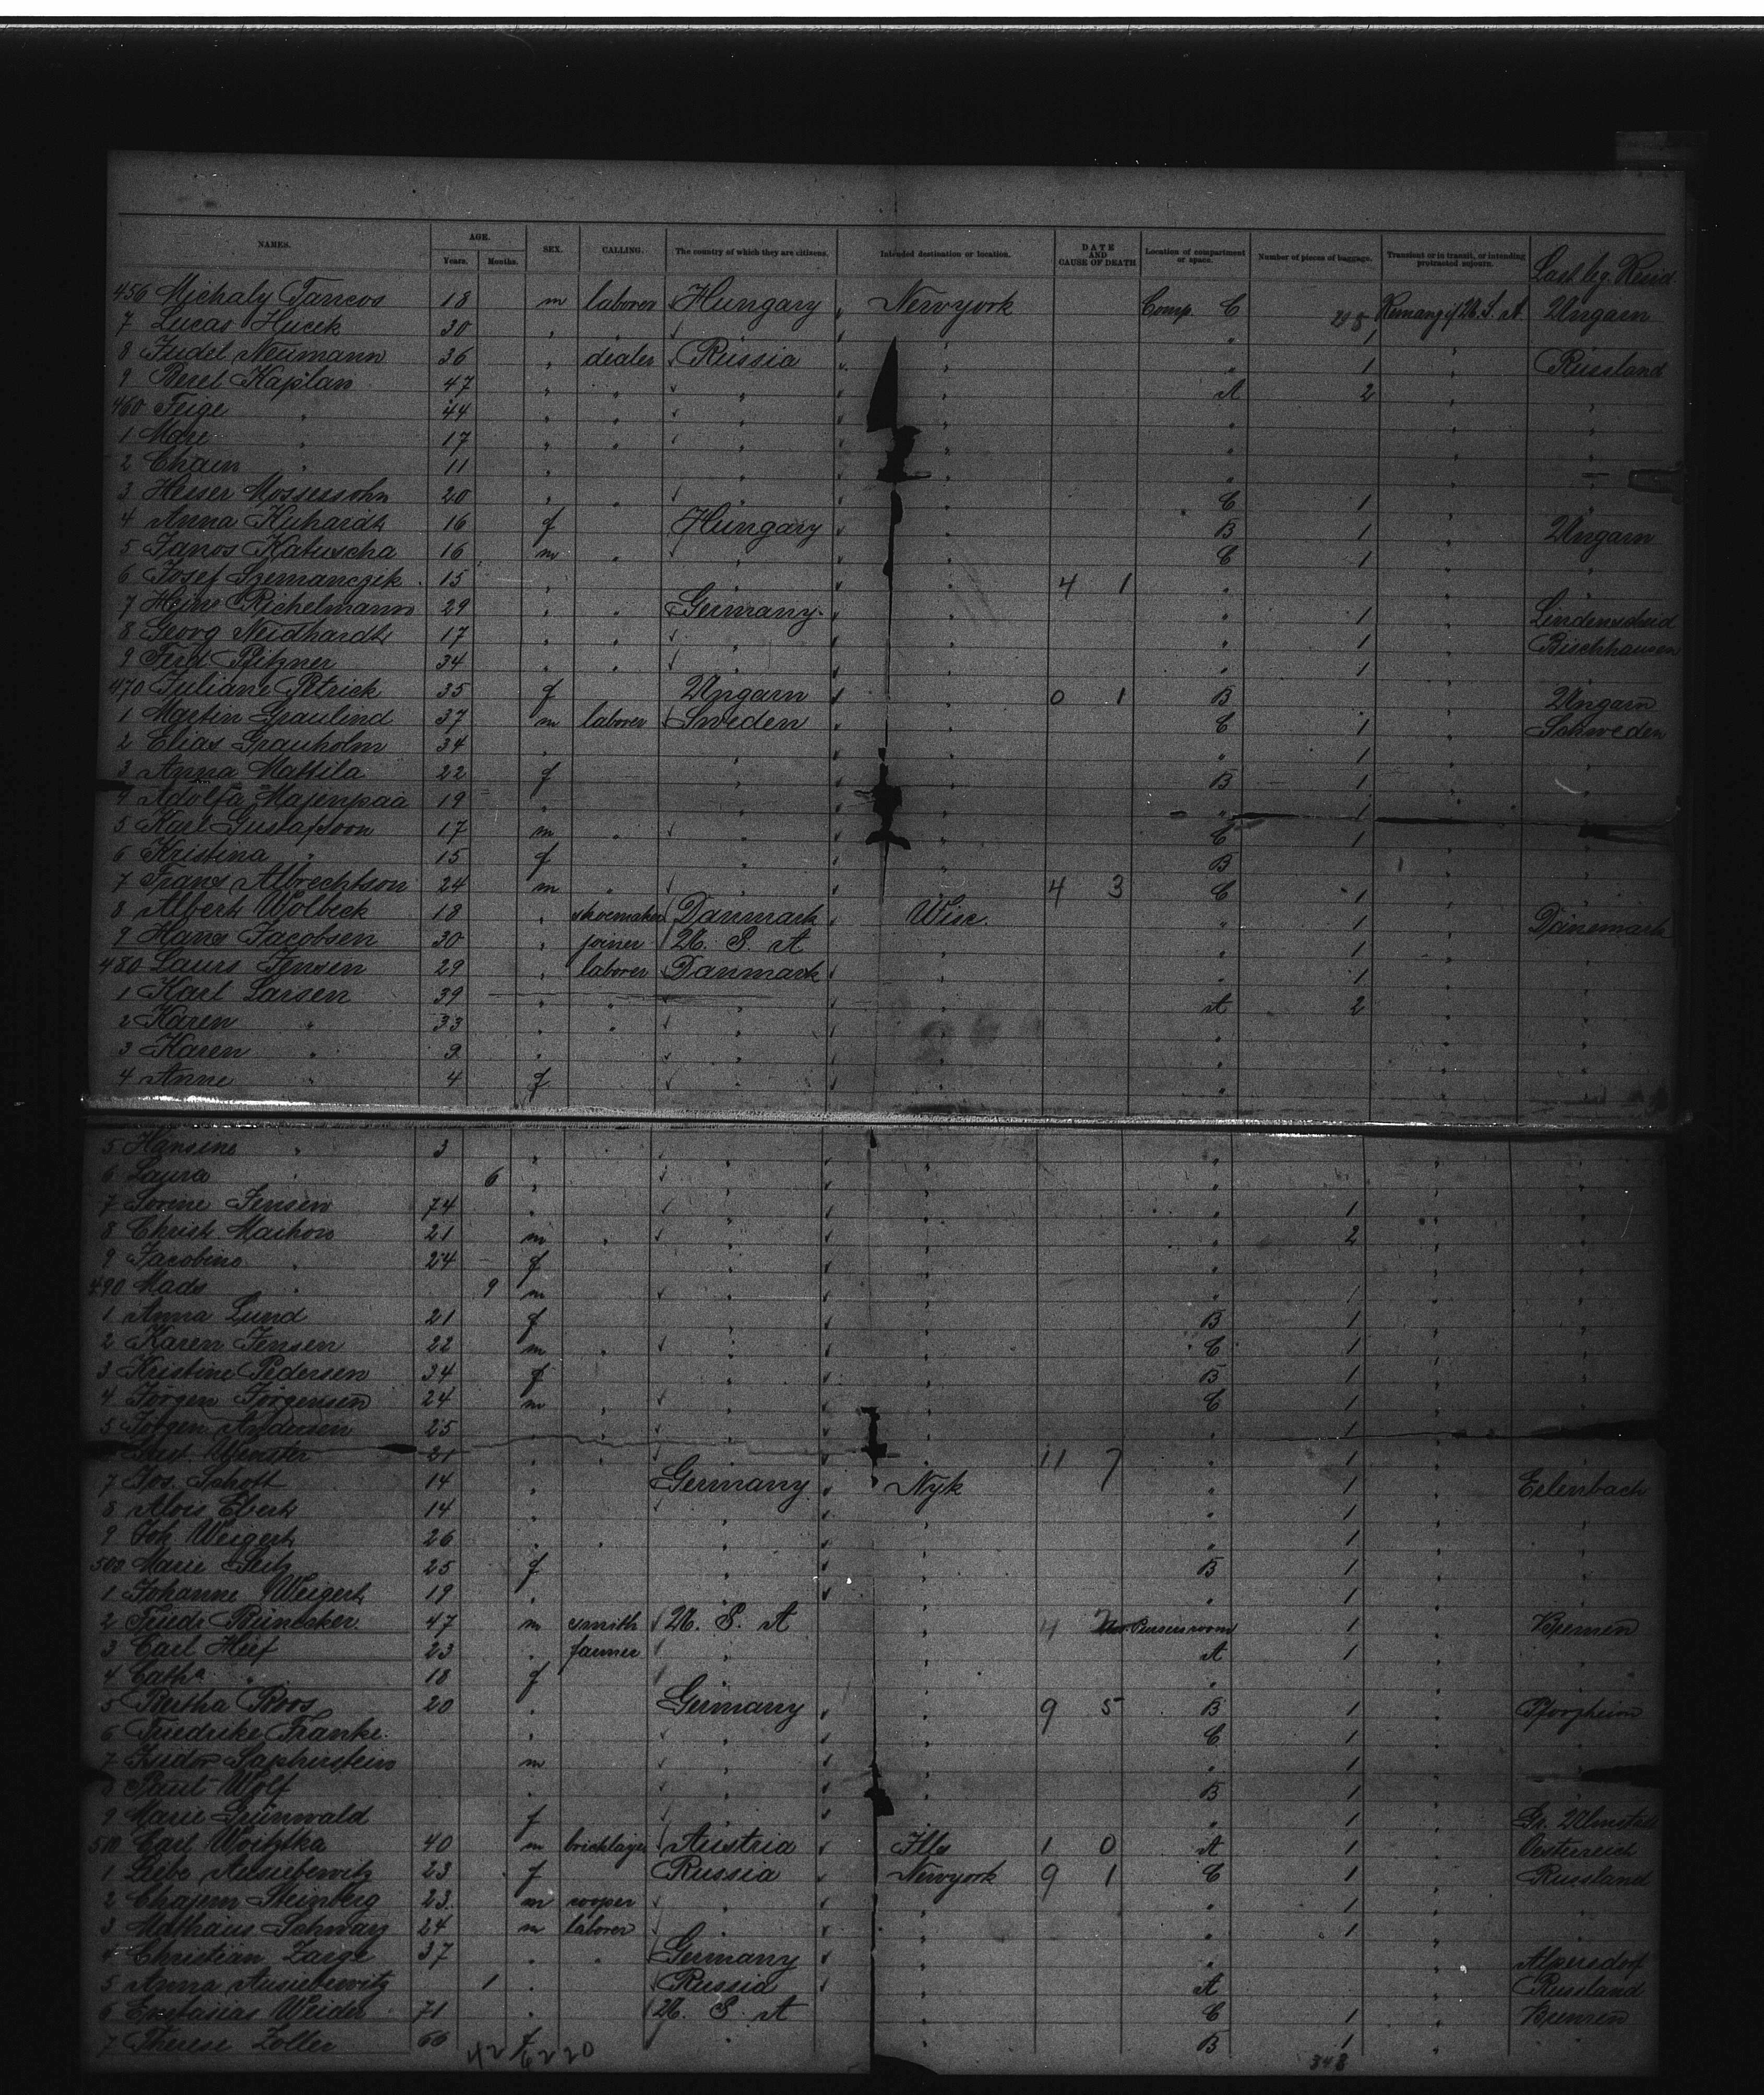 NAMES. AGE. SEX. CALLING. The country of which they are citizens. Intended destination or location. DATE AND CAUSE OF DEATH Location of compartment or space. Number of pieces of baggage. Transient or in transit, or intending protracted sojourn. Last leg. Resid
Years. Months.
456 Michaly Tancos 18 m laborer Hungary Newyork Comp. C U. S. A. Ungarn
7 Lucas Hucek 30 " " " " 1 "
8 Judel Neumann 36 " dealer Russia " " 1 " Russland
9 Berel Kaplan 47 " " " " A 2 " "
460 Feige " 44 " " " " " " "
1 " 17 " " " " " " "
2 Chaim " 11 " " " " " "
3 Hesser Mossessohn 20 " " " " C 1 " "
4 Anna Kuhardt 16 f Hungary " B 1 " Ungarn
5 Janos Katuscha 16 m " " " C 1 " "
6 Josef Szemanczik 15 " " " 4 1 " " "
7 Heinr Richelmann 29 " " Germany " " 1 " Lindenscheid
8 Georg Neidhardt 17 " " " " " 1 " Bischhausen
9 Ferd Pfitzner 34 " " " " " 1 " "
470 Juliane Petrick 35 f Ungarn " 0 1 B " Ungarn
1 Martin Graulind 37 m laborer Sweden " C 1 " Schweden
2 Elias Grauholm 34 " " " " 1 " "
3 Anna Mattila 22 f " " B 1 " "
4 Adolfa Majenpaa 19 " " " " 1 " "
5 Karl Gustafsson 17 m " " " C 1 " "
6 Kristina " 15 f " " B " "
7 Frans Albrechtson 24 m " " " 4 3 C 1 " "
8 Albert Wolbeck 18 " shoemaker Danmark Wisc. " 1 " Dänemark
9 Hans Jacobsen 30 " joiner U. S. A " " 1 " "
480 Laurs Jensen 29 " laborer Danmark " " 1 " "
1 Karl Larsen 39 " " " " A 2 " "
2 Karen " 33 " " " " " " "
3 Karen " 9 " " " " " "
4 Anne " 4 f " " " " "
5 Hansine " 3 " " " " " "
6 Laura " 6 " " " " " "
7 Sorine Jensen 74 " " " " 1 " "
8 Christ. 21 m " " " " 2 " "
9 Jacobine " 24 f " " " " "
490 Mads " 9 m " " " " "
1 Anna Lund 21 f " " B 1 " "
2 Karen Jensen 22 m " " " C 1 " "
3 Kristine Pedersen 34 f " " B 1 " "
4 Jörgen Jörgensen 24 m " " " C 1 " "
5 Jörgen Andersen 25 " " " " " 1 " "
21 " " " " 11 7 " 1 " "
7 Jos. Schott 14 " Germany Nyk " 1 " Erlenbach
8 Alois Ebert 14 " " " " 1 " "
9 Joh Weigert 26 " " " " " 1 " "
500 Marie Seitz 25 f " " B 1 " "
1 Johanne Weigert 19 " " " " 1 " "
2 Friedr Bünecker 47 m smith U. S. A " 4 1 " Bremen
3 Carl 23 " farmer " " A 1 " "
4 Cath. " 18 f " " " " "
5 Bertha Roos 20 " Germany " 9 5 B 1 " Pforzheim
6 Friedrike Franke " " " C 1 " "
7 m " " " 1 " "
8 Paul Wolf " " " B 1 " "
9 Marie Grünwald f " " " 1 " Gr. Umstadt
510 Carl 40 m bricklayer Austria Ills 1 0 A 1 " Oesterreich
1 23 f Russia Newyork 9 1 C 1 " Russland
2 Steinberg 23 m cooper " " " 1 " "
3 Mathaus 24 m laborer " " " 1 " "
4 Christian Zarge 37 " " Germany " " " Alpersdorf
5 Anna 1 " Russia " A " Russland
6 Weider 71 " U. S. A " C 1 " Bremen
7 Therese Zoller 66 " " B 1 " "
348